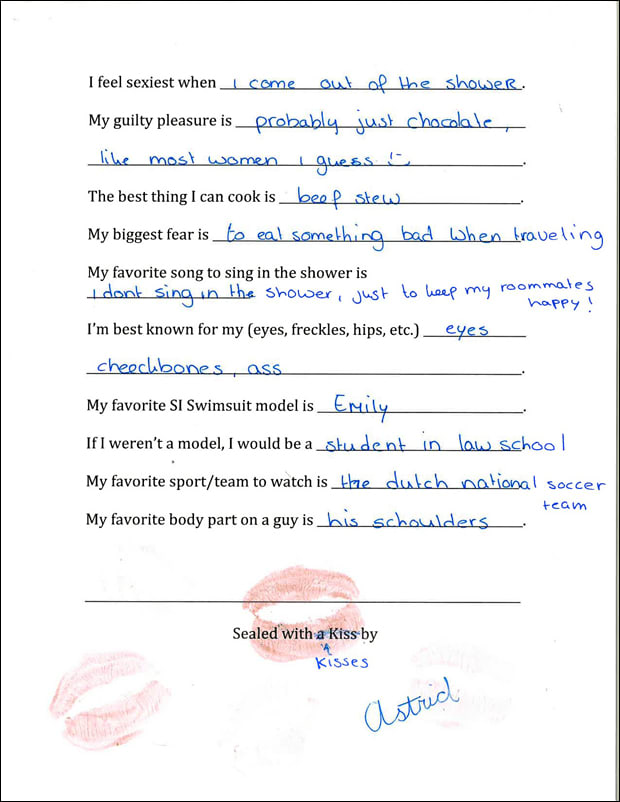 I feel sexiest when i come out of the shower.
My guilty pleasure is probably just chocolate,
like most women i guess :).
The best thing I can cook is beef stew.
My biggest fear is to eat something bad when traveling
My favorite song to sing in the shower is
i dont sing in the shower, just to keep my roommates
happy!
I'm best known for my (eyes, freckles, hips, etc.) eyes
cheeckbones, ass.
My favorite SI Swimsuit model is Emily.
If I weren't a model, I would be a student in law school
My favorite sport/team to watch is the dutch national soccer
team
My favorite body part on a guy is his schoulders.
Sealed with a Kiss by
Kisses
Astrid